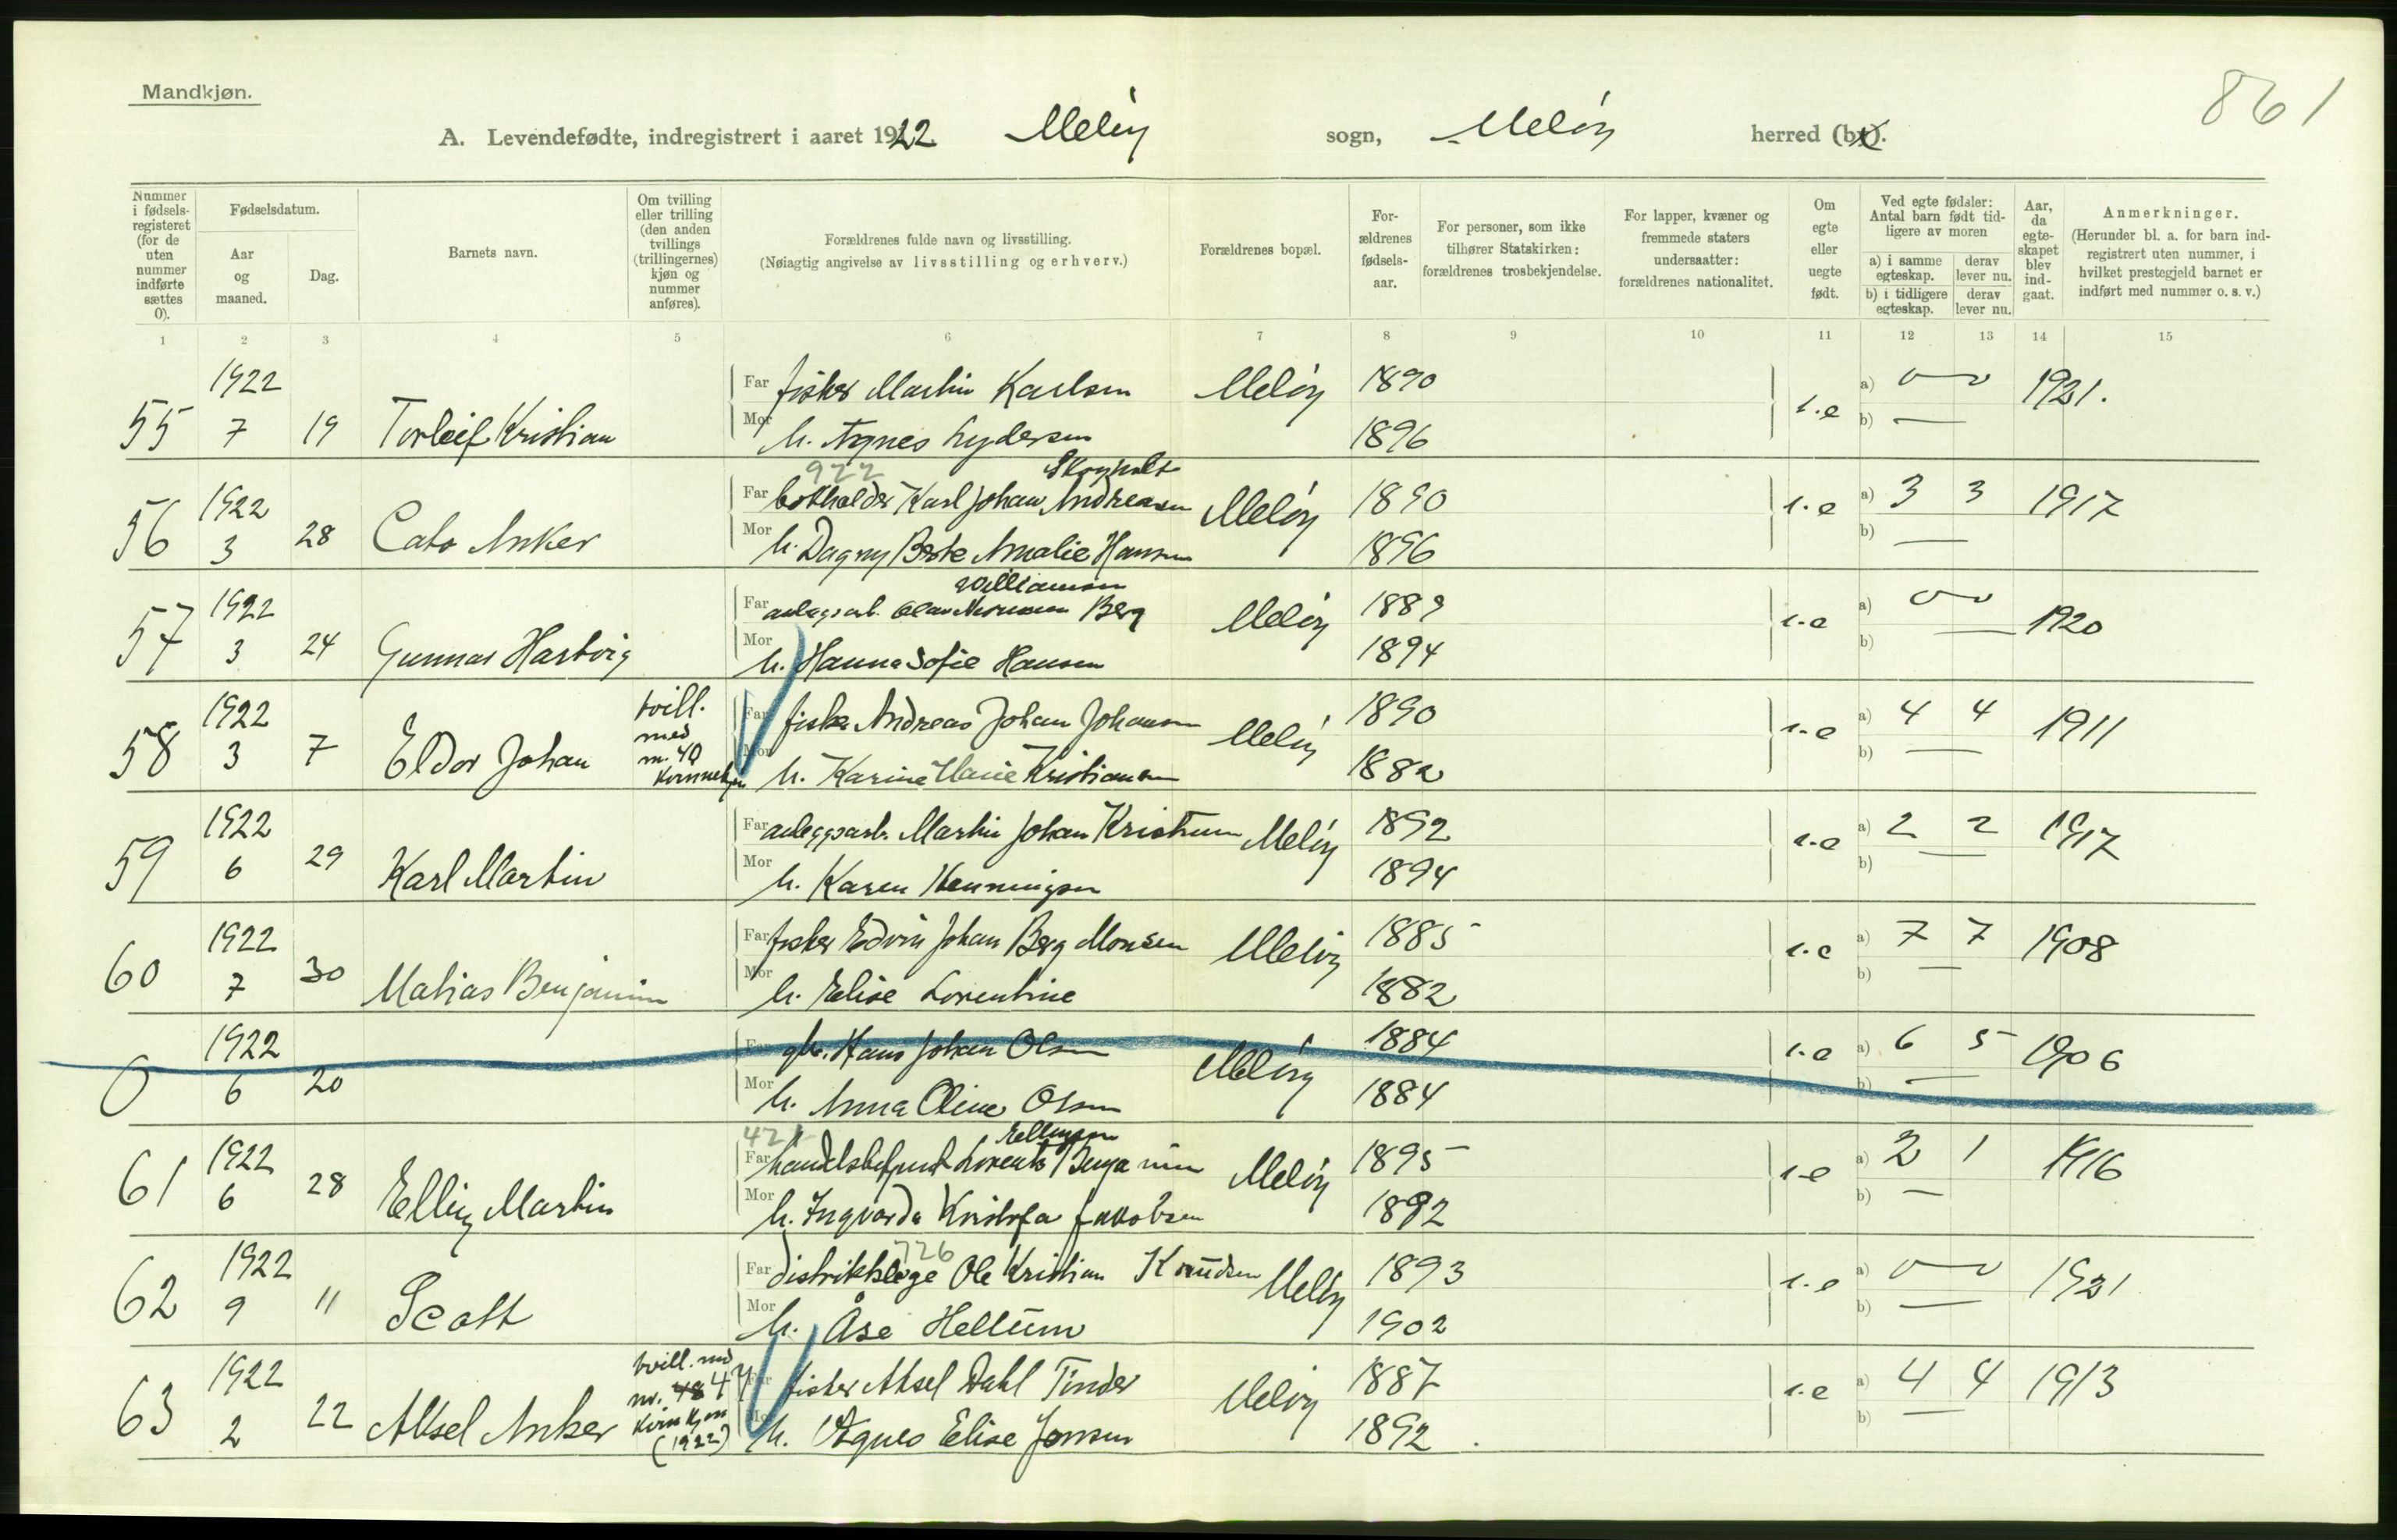 861
Mandkjøn.
A. Levendefødte, indregistrert i aaret 1922 Meløy sogn, Meløy herred (by).
Nummer i fødselsregisteret (for de uten nummer indførte sættes 0).
Fødselsdatum.
Aar og maaned.
Dag.
Barnets navn.
Om tvilling eller trilling (den anden tvillings (trillingernes) kjøn og nummer anføres).
Forældrenes fulde navn og livsstilling.
(Nøiagtig angivelse av livsstilling og erhverv.)
Forældrenes bopæl.
Forældrenes fødselsaar.
For personer, som ikke tilhører Statskirken: forældrenes trosbekjendelse.
For lapper, kvæner og fremmede staters undersaatter: forældrenes nationalitet.
Om egte eller uegte født.
Ved egte fødsler: Antal barn født tidligere av moren
a) i samme egteskap. derav lever nu.
b) i tidligere egteskap. derav lever nu.
Aar, da egteskapet blev indgaat.
Anmerkninger.
(Herunder bl. a. for barn indregistrert uten nummer, i hvilket prestegjeld barnet er indført med nummer o. s. v.)
1 2 3 4 5 6 7 8 9 10 11 12 13 14 15
1922 Far fisker Martin Karlsen Meløy 1890 a) 0 0 1921.
55 7 19 Torleif Kristian Mor h. Agnes Lydersen 1896 1.e b) —
922 Skogholt
1922 Far Karl Johan Andreasen Meløy 1890 1.e a) 3 3 1917
56 3 28 Cato Anker Mor h. Dagny Berte Amalie Hansen 1896 b) —
Williamsen
1922 Far anlegsarb. Olav Berg Meløy 1889 1.e a) 0 0 1920
57 3 24 Gunnar Hartvig Mor h. Hanna Sofie Hansen 1894 b) —
1922 tvill. Far fisker Andreas Johan Johansen Meløy 1890 1.e a) 4 4 1911
58 3 7 Eldor Johan med m. 40 Mor h. Karine Marie Kristiansen 1882 b) —
1922 Far anleggsarb. Martin Johan Meløy 1892 1.e a) 2 2 1917
59 6 29 Karl Martin Mor h. Karen Henningsen 1894 b) —
1922 Far fisker Edvin Johan Berg Monsen Meløy 1885 1.e a) 7 7 1908
60 7 30 Matias Benjamin Mor h. Elise Lorentine 1882 b) —
1922 Far gbr. Hans Johan Olsen Meløy 1884 1.e a) 6 5 1906
0 6 20 Mor h. Anna Oline Olsen 1884 b) —
421 Ellingsen
1922 Far handelsbetjent Lorents Benjamin Meløy 1895 1.e a) 2 1 1916
61 6 28 Elling Martin Mor h. Ingvarda Kristofa Jakobsen 1892 b) —
726
1922 Far distriktslæge Ole Kristian Knudsen Meløy 1893 1.e a) 0 0 1921
62 9 11 Scott Mor h. Åse Hellum 1902 b) —
1922 tvill. med Far fisker Aksel Dahl Tinder Meløy 1887 1.e a) 4 4 1913
63 2 22 Aksel Anker nr. 48 47 Mor h. Agnes Elise Jensen 1892 b) —
kvinkjøn
(1922)